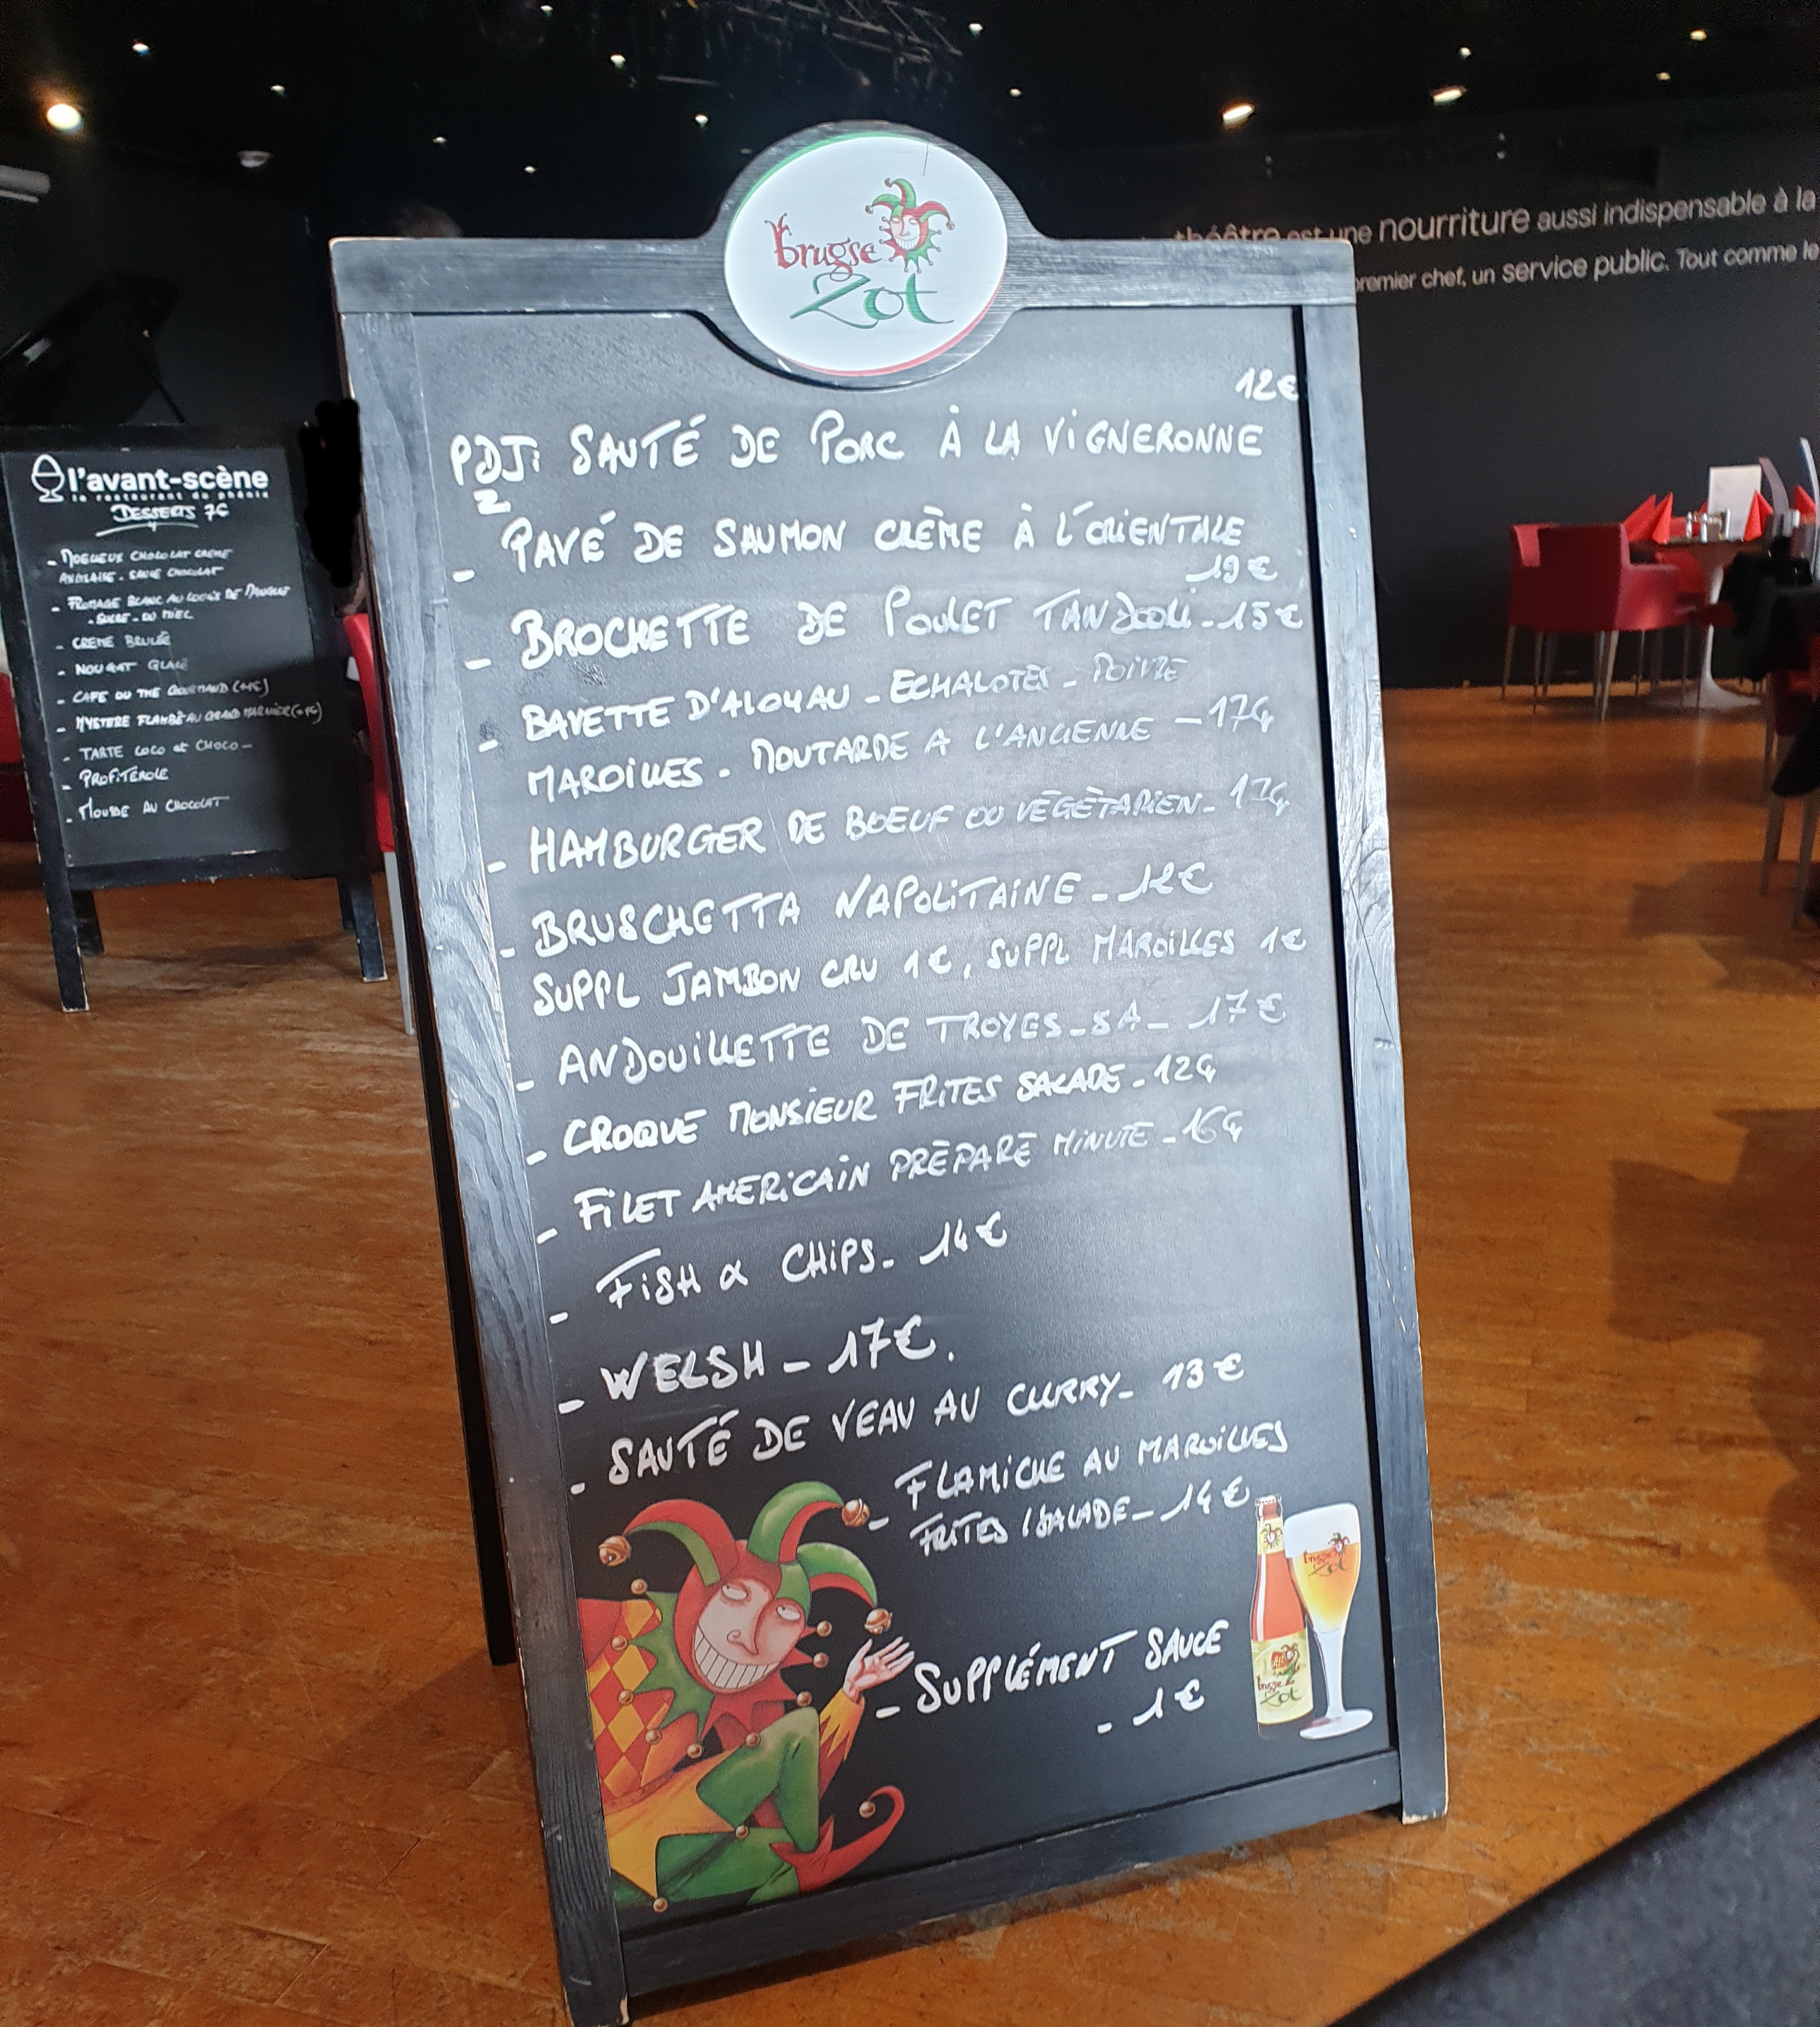 brugse
Zot
théâtre est une nourriture aussi indispensable à la
premier chef, un service public. Tout comme le
12€
PDJ: SAUTÉ DE PORC À LA VIGNERONNE
- PAVÉ DE SAUMON CRÈME À L'ORIENTALE
19€
- BROCHETTE DE POULET TANDOORI - 15€
- BAVETTE D'ALOYAU - ECHALOTES - POIVRE
MAROILLES - MOUTARDE A L'ANCIENNE - 17€
- HAMBURGER DE BOEUF OU VÉGÉTARIEN -
- BRUSCHETTA NAPOLITAINE - 12€
SUPPL JAMBON CRU 1€, SUPPL MAROILLES 1€
- ANDOUILLETTE DE TROYES - 5A - 17€
- CROQUE MONSIEUR FRITES SALADE - 12€
- FILET AMERICAIN PRÉPARÉ MINUTE - 16€
- FISH & CHIPS - 14€
- WELSH - 17€.
- SAUTÉ DE VEAU AU CURRY - 13€
- FLAMICHE AU MAROILLES
FRITES / SALADE - 14€
- SUPPLÉMENT SAUCE
- 1€
brugse
Zot
brugse
Zot
l'avant-scène
le restaurant du phénix
DESSERTS 7€
- MOELLEUX CHOCOLAT CREME
ANGLAISE - SAUCE CHOCOLAT
- FROMAGE BLANC AU COULIS DE MANGUE
- SUCRE - OU MIEL
- CREME BRULÉE
- NOUGAT GLACÉ
- CAFE OU THE GOURMAND (+1€)
- MYSTERE FLAMBÉ AU GRAND MARNIER (+1€)
- TARTE COCO et CHOCO -
- PROFITEROLE
- MOUSSE AU CHOCOLAT